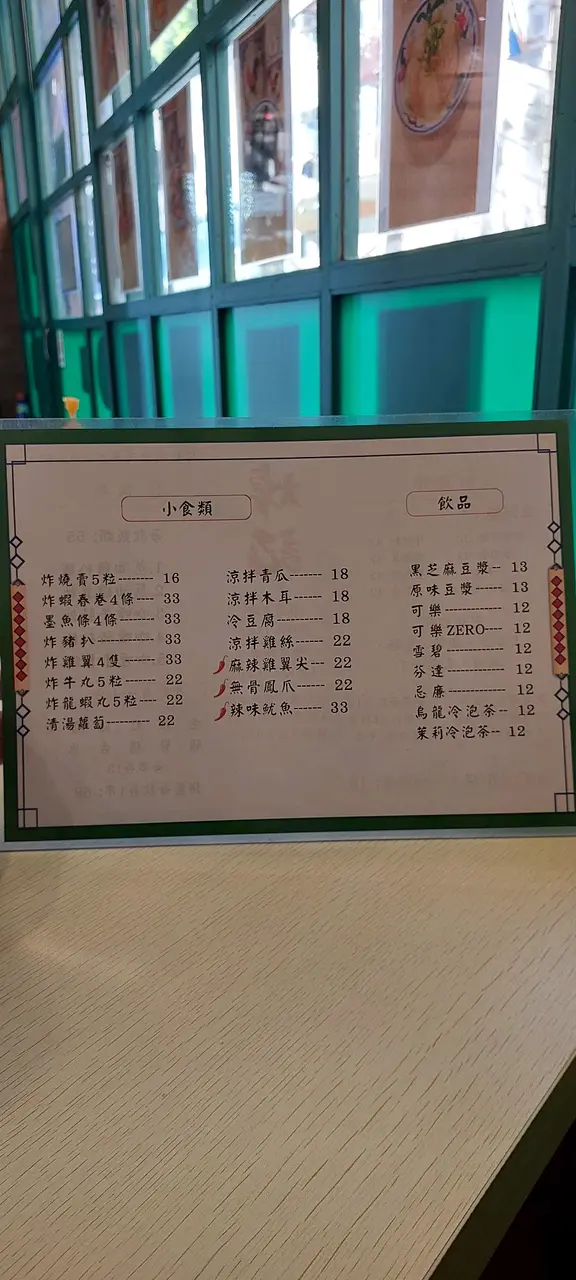 小食類
炸燒賣5粒-------- 16
炸蝦春卷4條---- 33
墨魚條4條------- 33
炸豬扒------------- 33
炸雞翼4隻------- 33
炸牛丸5粒------ 22
炸龍蝦丸5粒---- 22
清湯蘿蔔---------- 22
涼拌青瓜------- 18
涼拌木耳------- 18
冷豆腐---------- 18
涼拌雞絲------ 22
麻辣雞翼尖--- 22
無骨鳳爪------ 22
辣味魷魚------ 33
飲品
黑芝麻豆漿-- 13
原味豆漿----- 13
可樂------------- 12
可樂ZERO---- 12
雪碧------------ 12
芬達------------ 12
忌廉------------ 12
烏龍冷泡茶-- 12
茉莉冷泡茶-- 12